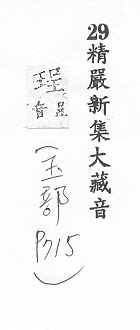 29
精嚴新集大藏音
音
(玉部
P715)